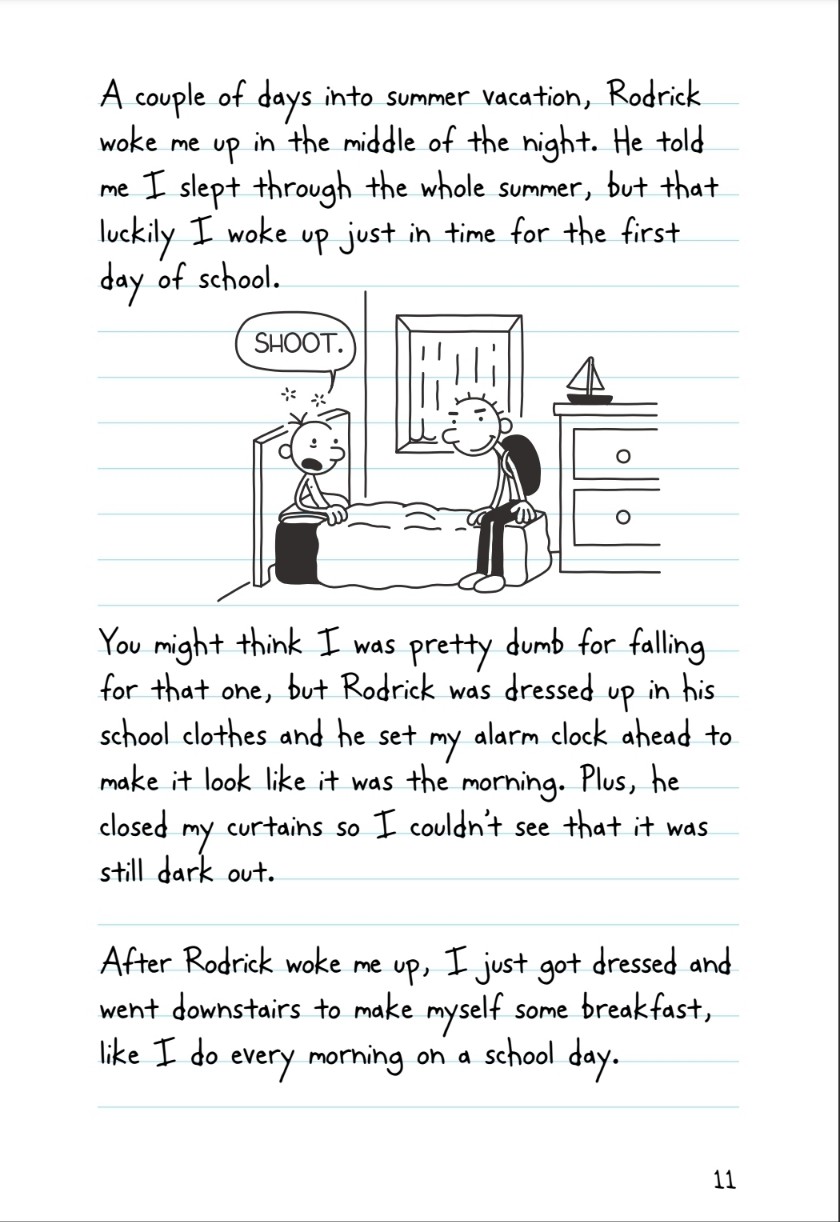 A couple of days into summer vacation, Rodrick
woke me up in the middle of the night. He told
me I slept through the whole summer, but that
luckily I woke up just in time for the first
day of school.
SHOOT.
You might think I was pretty dumb for falling
for that one, but Rodrick was dressed up in his
school clothes and he set my alarm clock ahead to
make it look like it was the morning. Plus, he
closed my curtains so I couldn't see that it was
still dark out.
After Rodrick woke me up, I just got dressed and
went downstairs to make myself some breakfast,
like I do every morning on a school day.
11